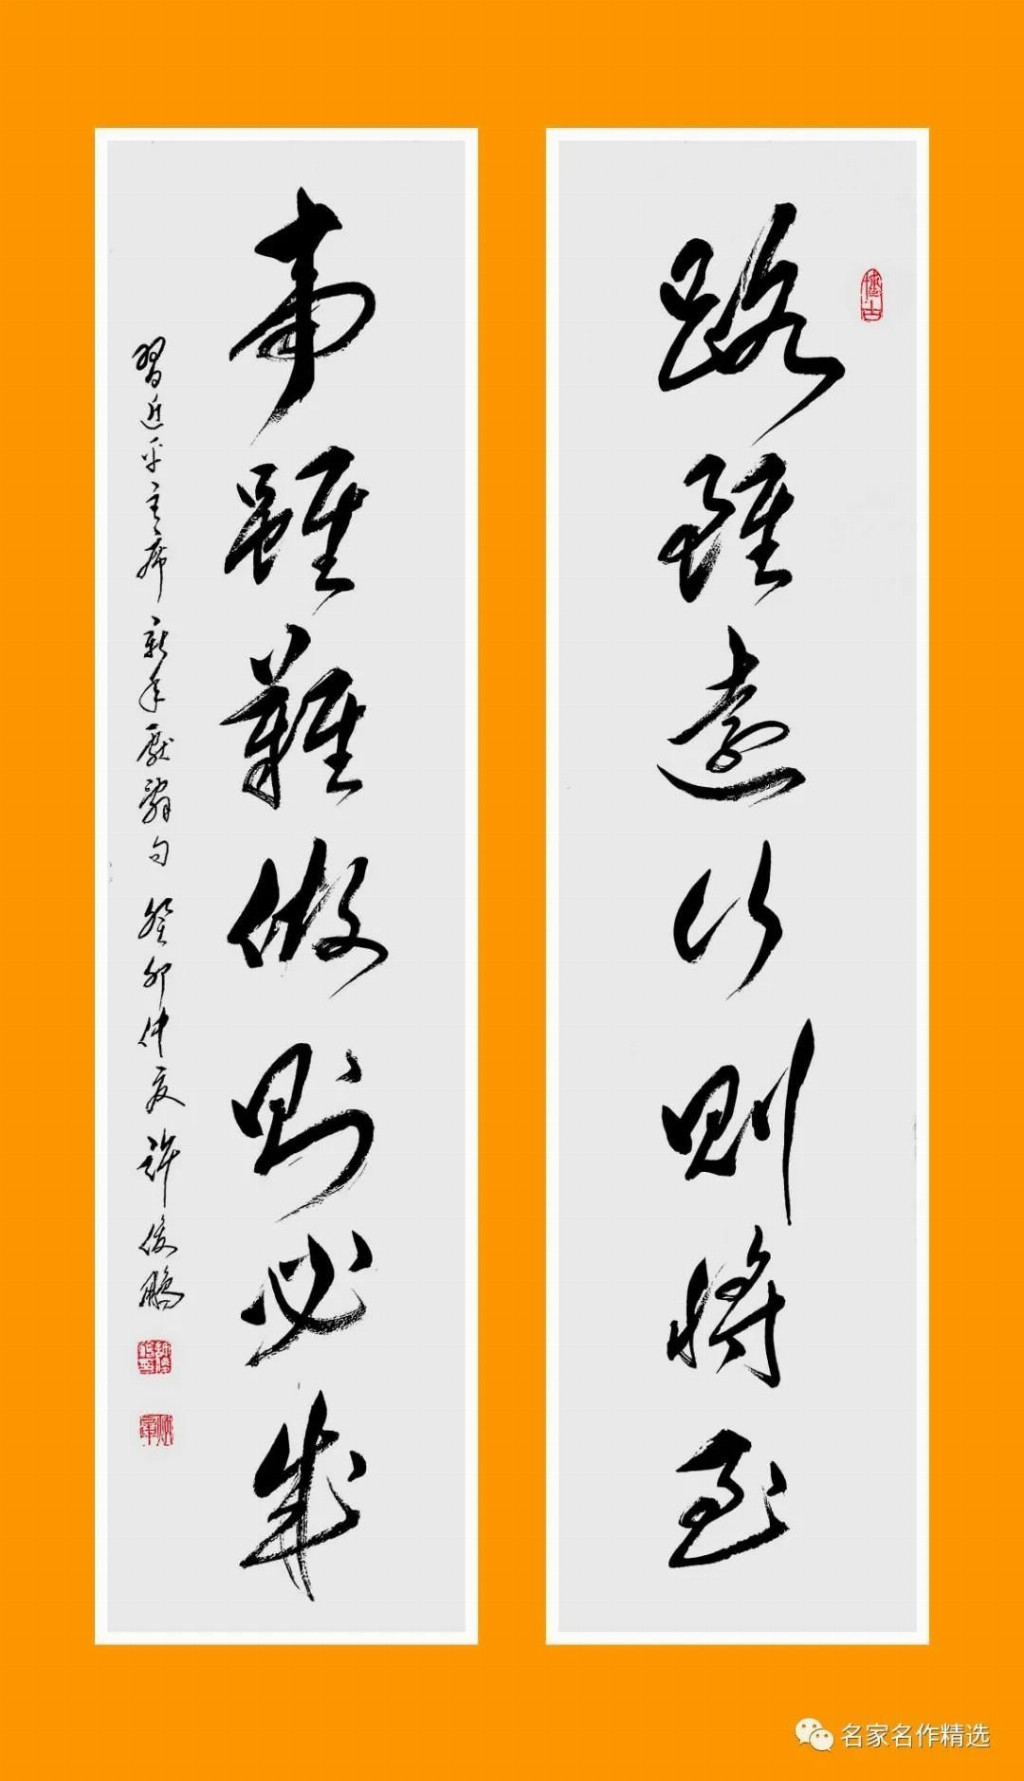 路雖遠行則將至
事雖難做則必成
習近平主席新年獻辭句 癸卯仲夏 許俊鵬
名家名作精选